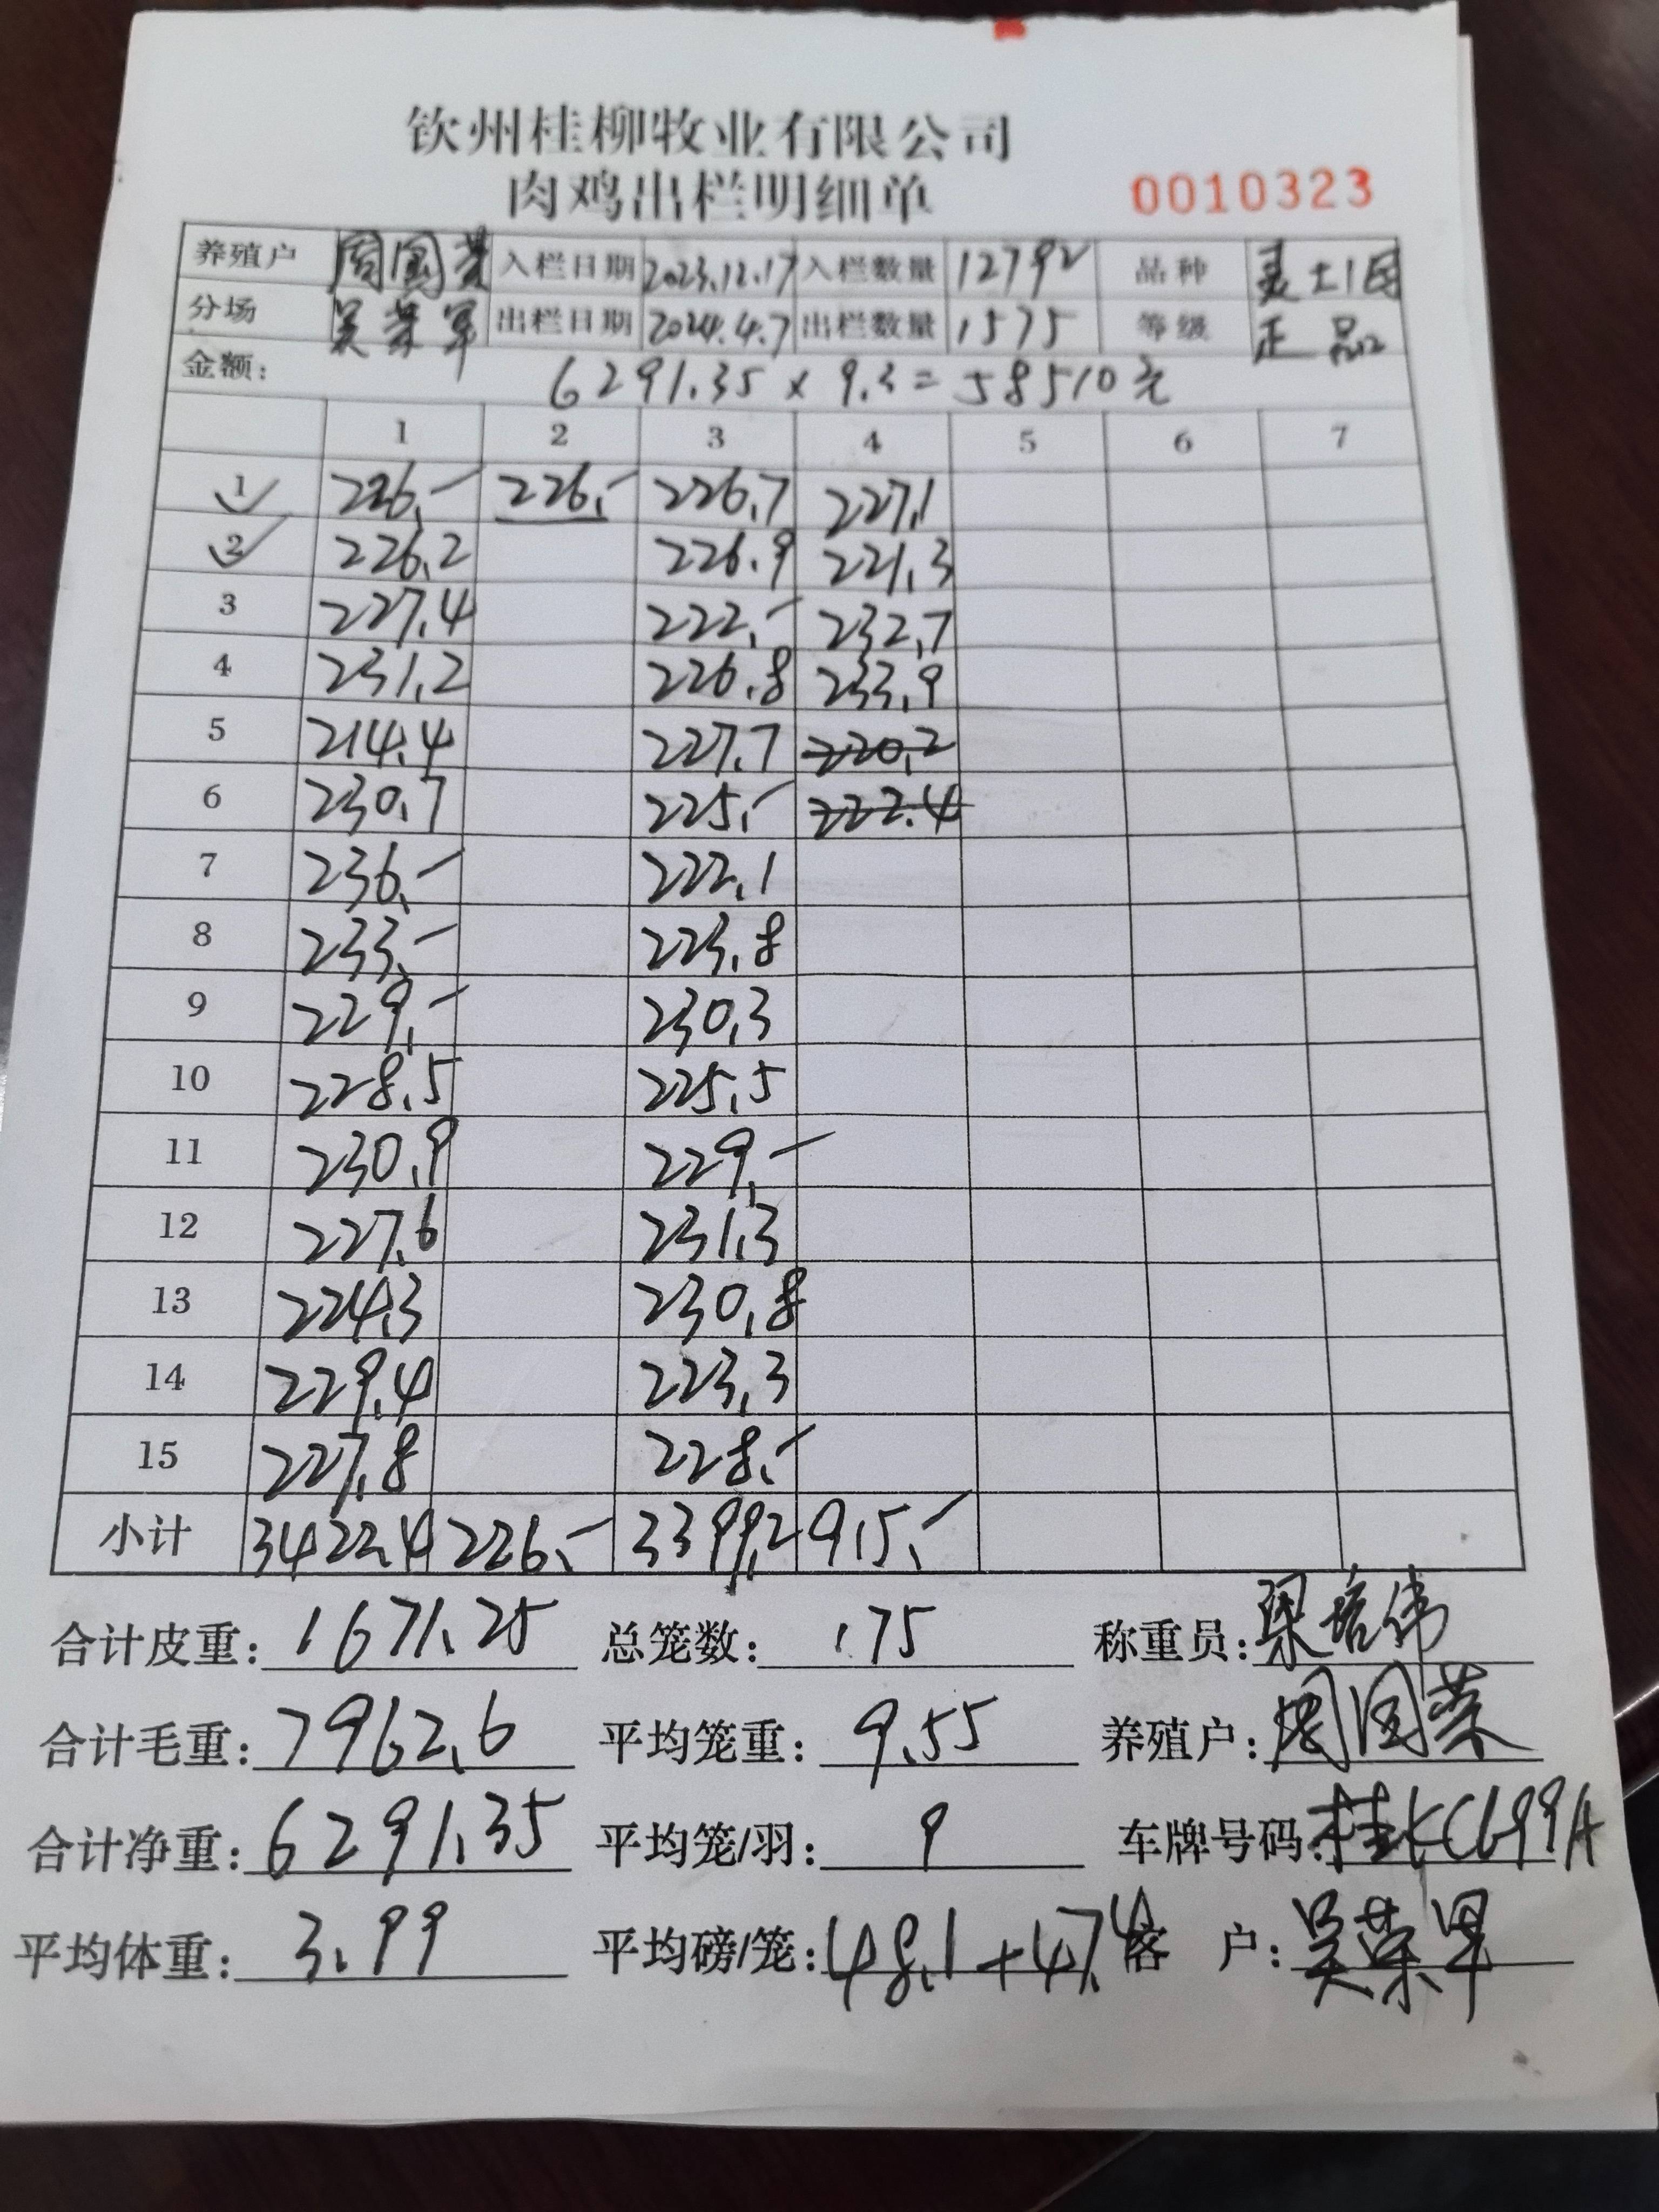 钦州桂柳牧业有限公司
肉鸡出栏明细单 0010323
养殖户 周国荣 入栏日期 2023.12.17 入栏数量 12792 品种
分场 吴荣军 出栏日期 2024.4.7 出栏数量 1575 等级 正品
金额: 6291.35 x 9.3 = 58510元
1 2 3 4 5 6 7
1 226.- 226.- 226.7 227.1
2 226.2 226.9 221.3
3 227.4 222.- 232.7
4 231.2 226.8 233.9
5 214.4 227.7 220.2
6 230.7 225.- 222.4
7 236.- 222.1
8 233.- 223.8
9 229.- 230.3
10 228.5 225.5
11 230.9 229.-
12 227.6 231.3
13 224.3 230.8
14 229.4 223.3
15 227.8 228.-
小计 3422.4 226.- 3399.2 915.-
合计皮重: 1671.25 总笼数: 175 称重员: 梁培伟
合计毛重: 7962.6 平均笼重: 9.55 养殖户: 周国荣
合计净重: 6291.35 平均笼/羽: 9 车牌号码: 桂KC699A
平均体重: 3.99 平均磅/笼: 48.1+47.4 客 户: 吴荣军